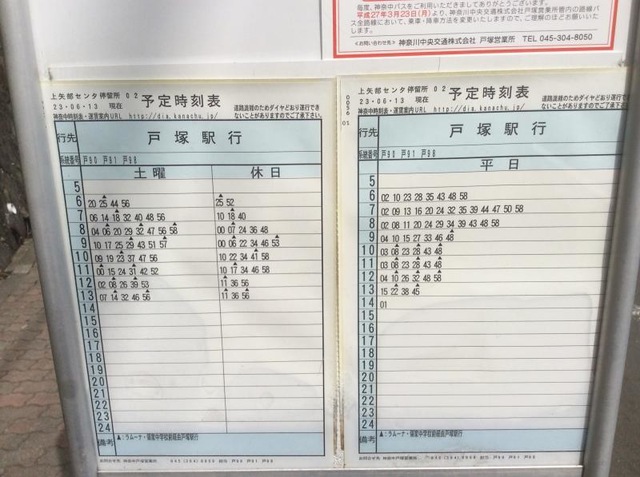 毎度、神奈中バスをご利用いただきましてありがとうございます。
平成27年3月23日(月)より、神奈川中央交通株式会社戸塚営業所管内の路線バス全路線において、乗車・降車方法を変更いたしますので、ご理解のほどお願いいたします。
<お問い合わせ先> 神奈川中央交通株式会社 戸塚営業所 TEL 045-304-8050
上矢部センタ停留所 02
23-06-13 現在
予定時刻表
道路混雑のためダイヤどおり運行できないことがありますのでご了承下さい。
神奈中時刻表・運賃案内URL http://dia.kanachu.jp/
行先 戸塚駅行
系統番号 戸90 戸91 戸98
土曜 休日
5
6 20 25 44 56 25 52
7 06 14 18 32 40 48 56 10 18 40
8 04 06 20 29 32 47 56 58 00 07 24 36 48
9 10 17 25 29 43 51 57 00 06 22 34 46 53
10 09 19 23 37 47 56 10 22 34 41 58
11 00 15 24 31 42 52 10 17 34 46 58
12 02 08 26 39 53 11 36 56
13 07 14 32 46 56 11 36 56
14
15
16
17
18
19
20
21
22
23
24
備考 ▲:ラムーナ・領家中学校前経由戸塚駅行
お問合せ先 神奈中戸塚営業所
上矢部センタ停留所 02
23-06-13 現在
予定時刻表
道路混雑のためダイヤどおり運行できないことがありますのでご了承下さい。
神奈中時刻表・運賃案内URL http://dia.kanachu.jp/
0056 05
行先 戸塚駅行
系統番号 戸90 戸91 戸98
平日
5
6 02 10 23 28 35 43 48 58
7 02 09 13 16 20 24 32 35 39 44 47 50 58
8 02 08 11 20 24 29 34 39 43 48 58
9 04 10 15 27 33 46 48
10 03 08 23 28 43 48
11 03 08 23 28 43 48
12 04 10 26 32 48 58
13 15 22 38 45
14 01
15
16
17
18
19
20
21
22
23
24
備考 ▲:ラムーナ・領家中学校前経由戸塚駅行
お問合せ先 神奈中戸塚営業所